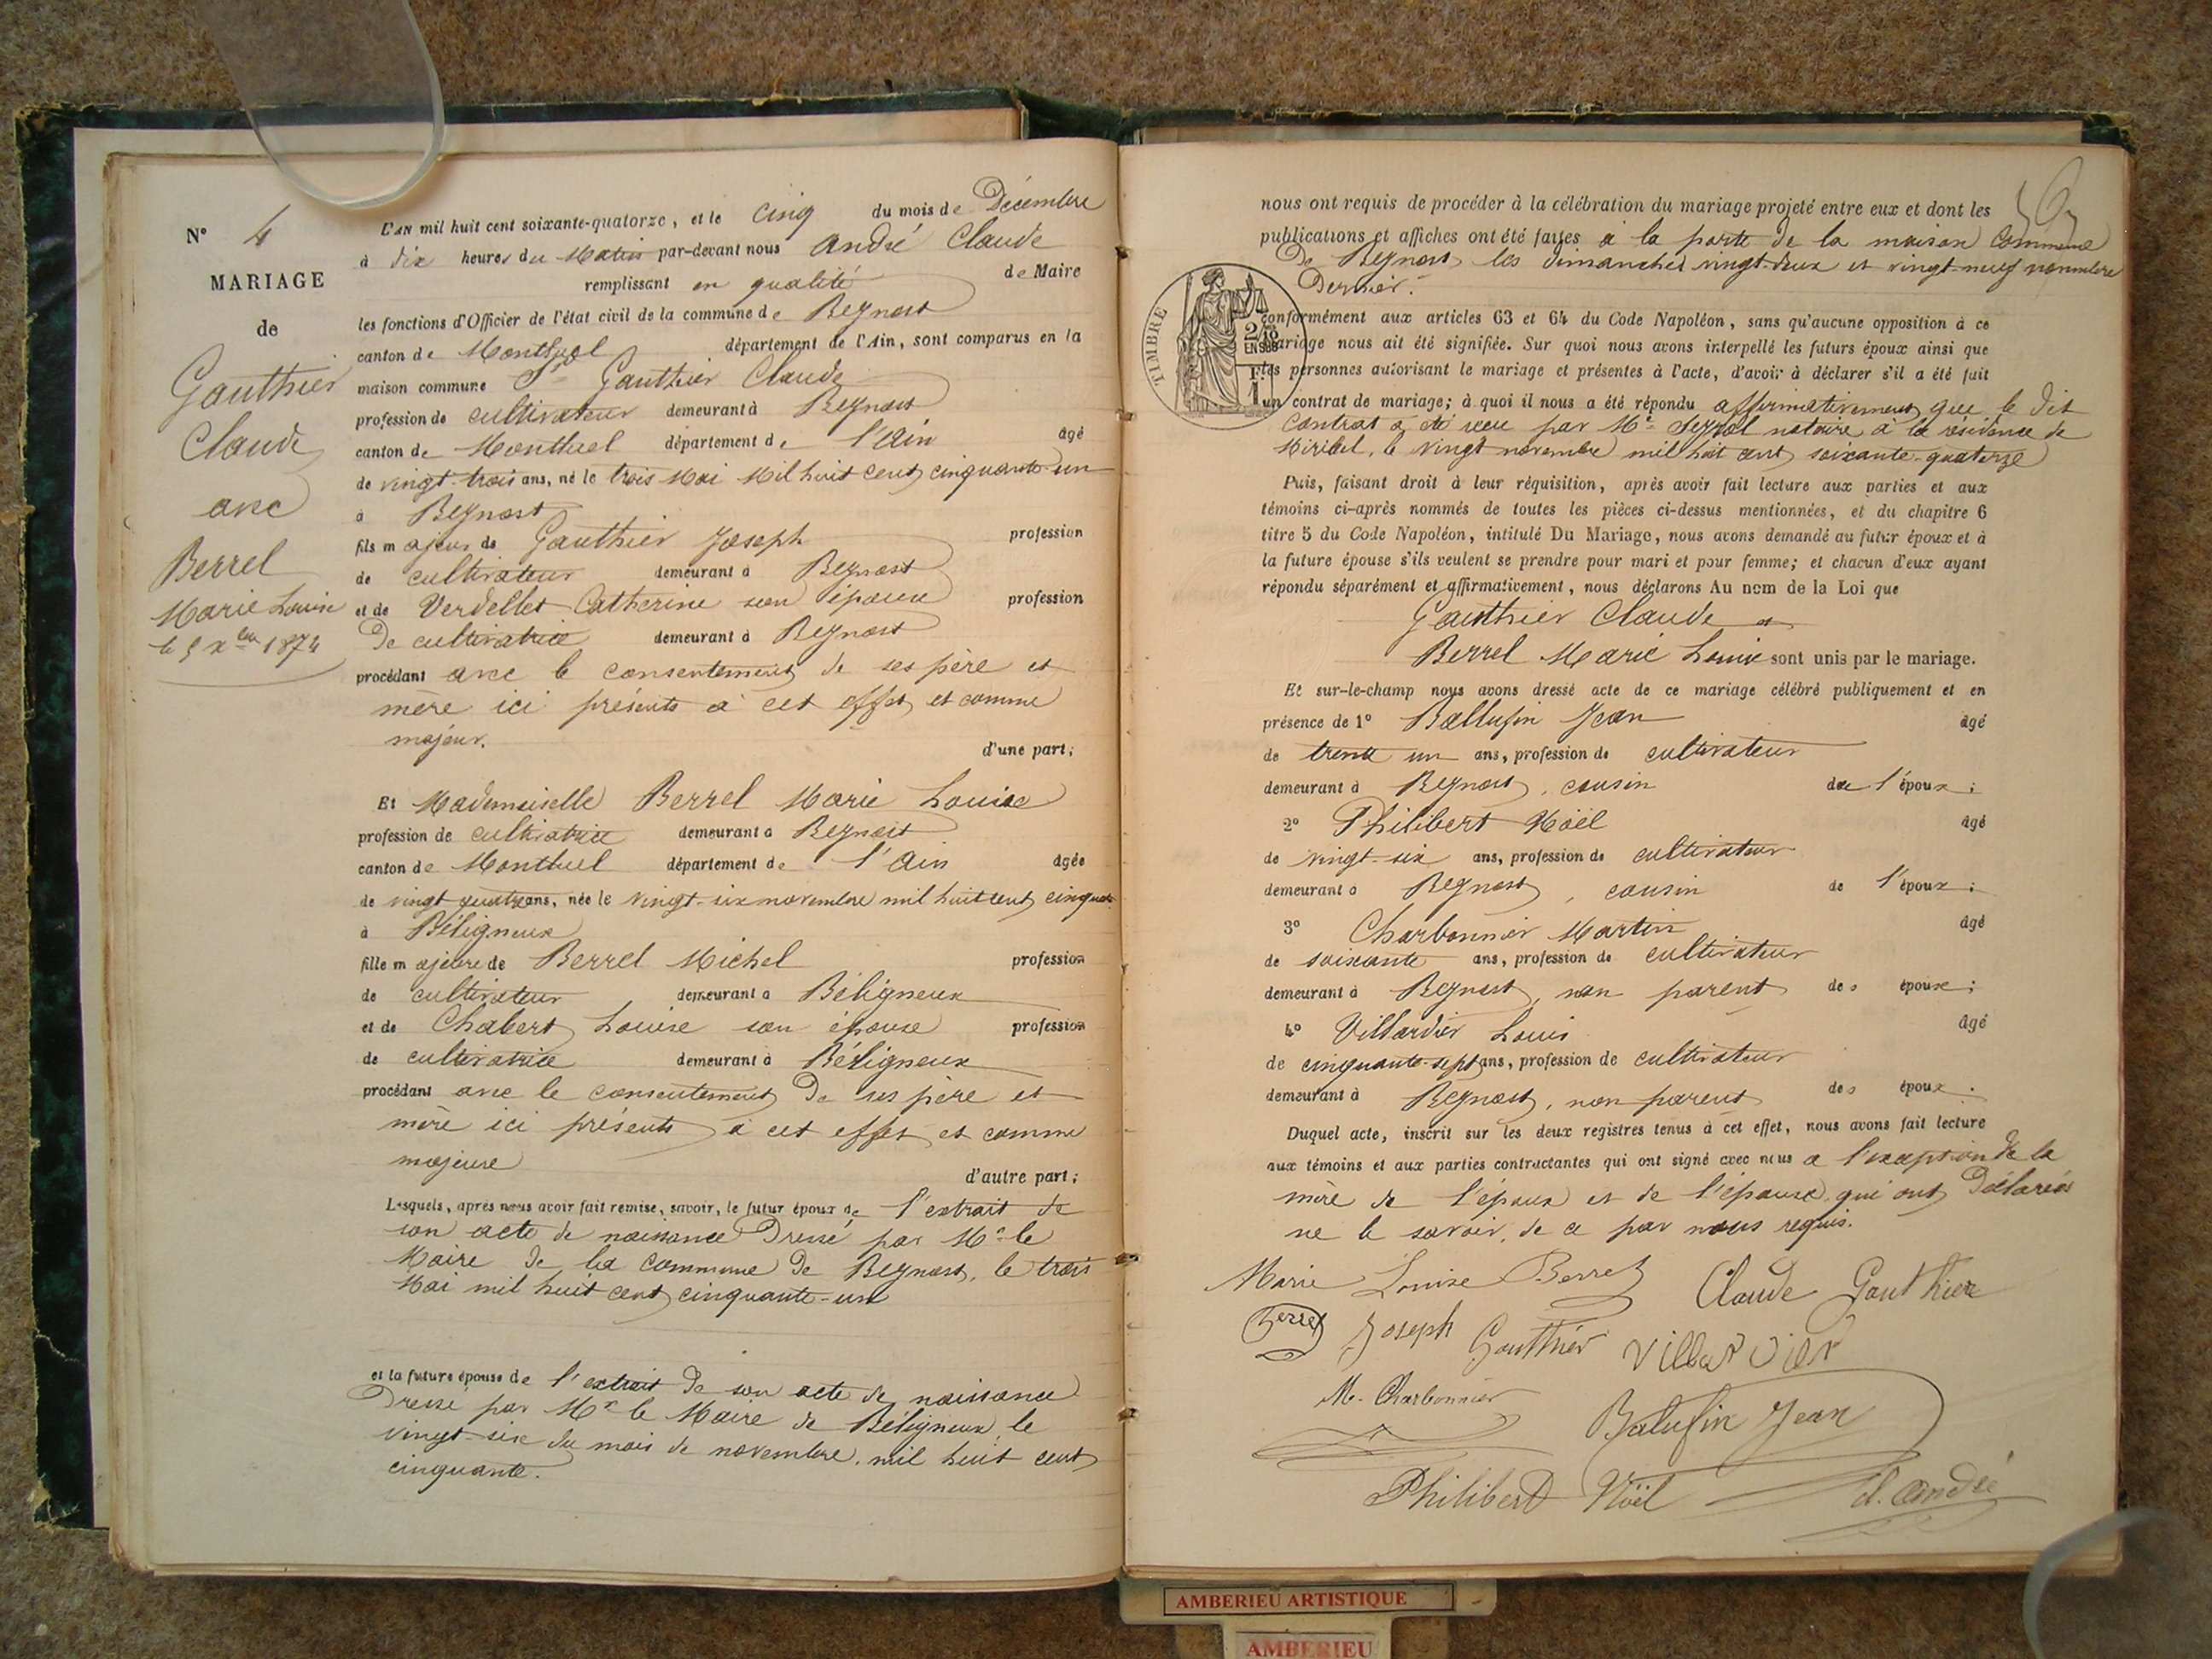 N° 4
MARIAGE
de
Gauthier
Claude
avec
Berrel
Marie Louise
le 5 Xbre 1874
L'AN mil huit cent soixante-quatorze, et le cinq du mois de Décembre
à dix heures du Matin par-devant nous André Claude
remplissant en qualité de Maire
les fonctions d'Officier de l'état civil de la commune de Beynost
canton de Montluel département de l'Ain, sont comparus en la
maison commune Sr Gauthier Claude
profession de cultivateur demeurant à Beynost
canton de Montluel département de l'Ain âgé
de vingt-trois ans, né le trois Mai Mil huit cent cinquante-un
à Beynost
fils majeur de Gauthier Joseph profession
de cultivateur demeurant à Beynost
et de Verdellet Catherine son épouse profession
De cultivatrice demeurant à Beynost
procédant avec le consentement de ses père et
mère ici présents à cet effet, et comme
majeur.
d'une part;
Et Mademoiselle Berrel Marie Louise
profession de cultivatrice demeurant à Beynost
canton de Montluel département de l'Ain âgée
de vingt quatre ans, née le vingt-six novembre mil huit cent cinquante
à Béligneux
fille majeure de Berrel Michel profession
de cultivateur demeurant à Béligneux
et de Chabert Louise son épouse profession
de cultivatrice demeurant à Béligneux
procédant avec le consentement De ses père et
mère ici présents à cet effet, et comme
majeure
d'autre part;
Lesquels, après nous avoir fait remise, savoir, le futur époux de l'extrait de
son acte de naissance Dressé par Mr le
Maire de la commune De Beynost, le trois
Mai mil huit cent cinquante-un
et la future épouse de l'extrait De son acte de naissance
Dressé par Mr le Maire de Béligneux, le
vingt-six du mois de novembre, mil huit cent
cinquante.
nous ont requis de procéder à la célébration du mariage projeté entre eux et dont les
publications et affiches ont été faites à la porte De la maison Commune
De Beynost, les dimanches vingt-deux et vingt-neuf novembre
Dernier.
TIMBRE
conformément aux articles 63 et 64 du Code Napoléon, sans qu'aucune opposition à ce
mariage nous ait été signifiée. Sur quoi nous avons interpellé les futurs époux ainsi que
les personnes autorisant le mariage et présentes à l'acte, d'avoir à déclarer s'il a été fait
un contrat de mariage; à quoi il nous a été répondu affirmativement que le Dit
Contrat a été reçu par Me notaire à la résidence de
Miribel, le vingt novembre mil huit cent soixante-quatorze
Puis, faisant droit à leur réquisition, après avoir fait lecture aux parties et aux
témoins ci-après nommés de toutes les pièces ci-dessus mentionnées, et du chapitre 6
titre 5 du Code Napoléon, intitulé Du Mariage, nous avons demandé au futur époux et à
la future épouse s'ils veulent se prendre pour mari et pour femme; et chacun d'eux ayant
répondu séparément et affirmativement, nous déclarons Au nom de la Loi que
Gauthier Claude et
Berrel Marie Louise sont unis par le mariage.
Et sur-le-champ nous avons dressé acte de ce mariage célébré publiquement et en
présence de 1° Ballufin Jean âgé
de trente un ans, profession de cultivateur
demeurant à Beynost, cousin de l'époux;
2° Philibert Noël âgé
de vingt-six ans, profession de cultivateur
demeurant à Beynost, cousin de l'époux;
3° Charbonnier Martin âgé
de soixante ans, profession de cultivateur
demeurant à Beynost, non parent des épouse;
4° Villardier Louis âgé
de cinquante-sept ans, profession de cultivateur
demeurant à Beynost, non parent des époux.
Duquel acte, inscrit sur les deux registres tenus à cet effet, nous avons fait lecture
aux témoins et aux parties contractantes qui ont signé avec nous à l'exception De la
mère de l'époux et de l'épouse qui ont Déclarées
ne le savoir, de ce par nous requis.
Marie Louise Berrel Claude Gauthier
Berrel Joseph Gauthier Villardier
M. Charbonnier Balufin Jean
Philibert Noël cl. André
AMBERIEU ARTISTIQUE
AMBERIEU